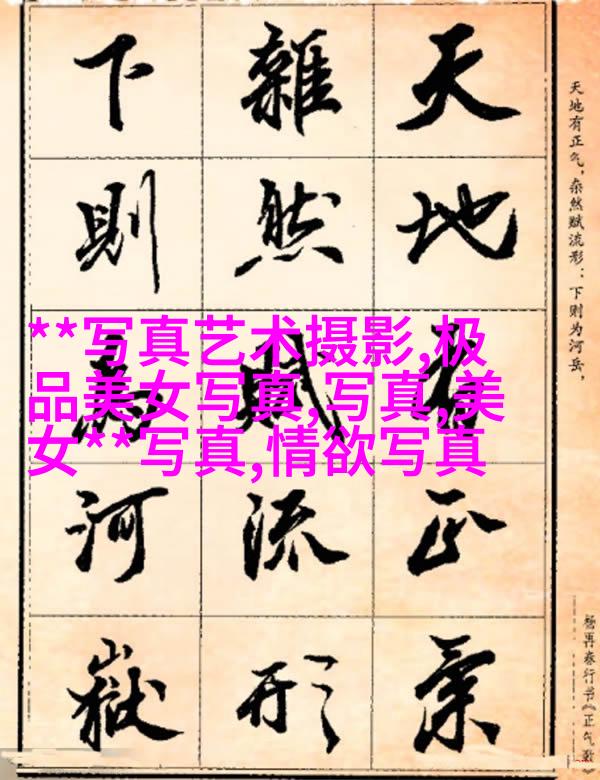 天地有正气，杂然赋流形：下则为河岳，
天地有正氣
雜然賦流形
下則為河嶽
**写真艺术摄影,极
品美女写真,写真,美
女**写真,情欲写真
杨再春行书《正气歌》